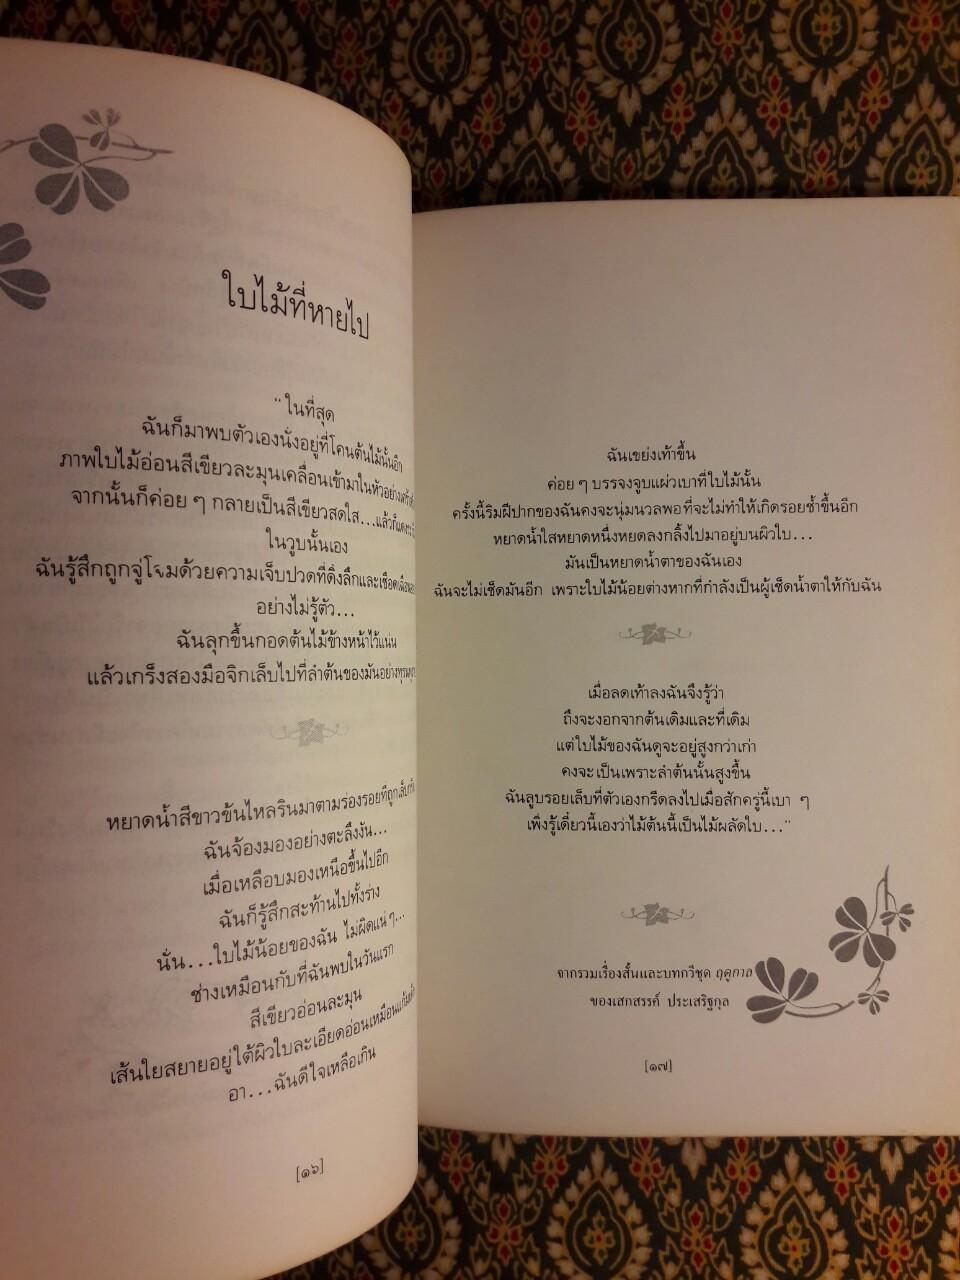 ใบไม้ที่หายไป
"ในที่สุด
ฉันก็มาพบตัวเองนั่งอยู่ที่โคนต้นไม้นั้นอีก
ภาพใบไม้อ่อนสีเขียวละมุนเคลื่อนเข้ามาในหัวอย่าง
จากนั้นก็ค่อย ๆ กลายเป็นสีเขียวสดใส...แล้วก็แดง
ในวูบนั้นเอง
ฉันรู้สึกถูกจู่โจมด้วยความเจ็บปวดที่ดิ่งลึกและเชือดเฉือน
อย่างไม่รู้ตัว...
ฉันลุกขึ้นกอดต้นไม้ข้างหน้าไว้แน่น
แล้วเกร็งสองมือจิกเล็บไปที่ลำต้นของมันอย่าง
หยาดน้ำสีขาวข้นไหลรินมาตามร่องรอยที่ถูกเล็บ
ฉันจ้องมองอย่างตะลึงงัน...
เมื่อเหลือบมองเหนือขึ้นไปอีก
ฉันก็รู้สึกสะท้านไปทั้งร่าง
นั่น...ใบไม้น้อยของฉัน ไม่ผิดแน่ ๆ...
ช่างเหมือนกับที่ฉันพบในวันแรก
สีเขียวอ่อนละมุน
เส้นใยสยายอยู่ใต้ผิวใบละเอียดอ่อนเหมือนแก้ม
อา...ฉันดีใจเหลือเกิน
[๑๖]
ฉันเขย่งเท้าขึ้น
ค่อย ๆ บรรจงจูบแผ่วเบาที่ใบไม้นั้น
ครั้งนี้ริมฝีปากของฉันคงจะนุ่มนวลพอที่จะไม่ทำให้เกิดรอยช้ำขึ้นอีก
หยาดน้ำใสหยาดหนึ่งหยดลงกลิ้งไปมาอยู่บนผิวใบ...
มันเป็นหยาดน้ำตาของฉันเอง
ฉันจะไม่เช็ดมันอีก เพราะใบไม้น้อยต่างหากที่กำลังเป็นผู้เช็ดน้ำตาให้กับฉัน
เมื่อลดเท้าลงฉันจึงรู้ว่า
ถึงจะงอกจากต้นเดิมและที่เดิม
แต่ใบไม้ของฉันดูจะอยู่สูงกว่าเก่า
คงจะเป็นเพราะลำต้นนั้นสูงขึ้น
ฉันลูบรอยเล็บที่ตัวเองกรีดลงไปเมื่อสักครู่นี้เบา ๆ
เพิ่งรู้เดี๋ยวนี้เองว่าไม้ต้นนี้เป็นไม้ผลัดใบ..."
จากรวมเรื่องสั้นและบทกวีชุด ฤดูกาล
ของเสกสรรค์ ประเสริฐกุล
[๑๗]